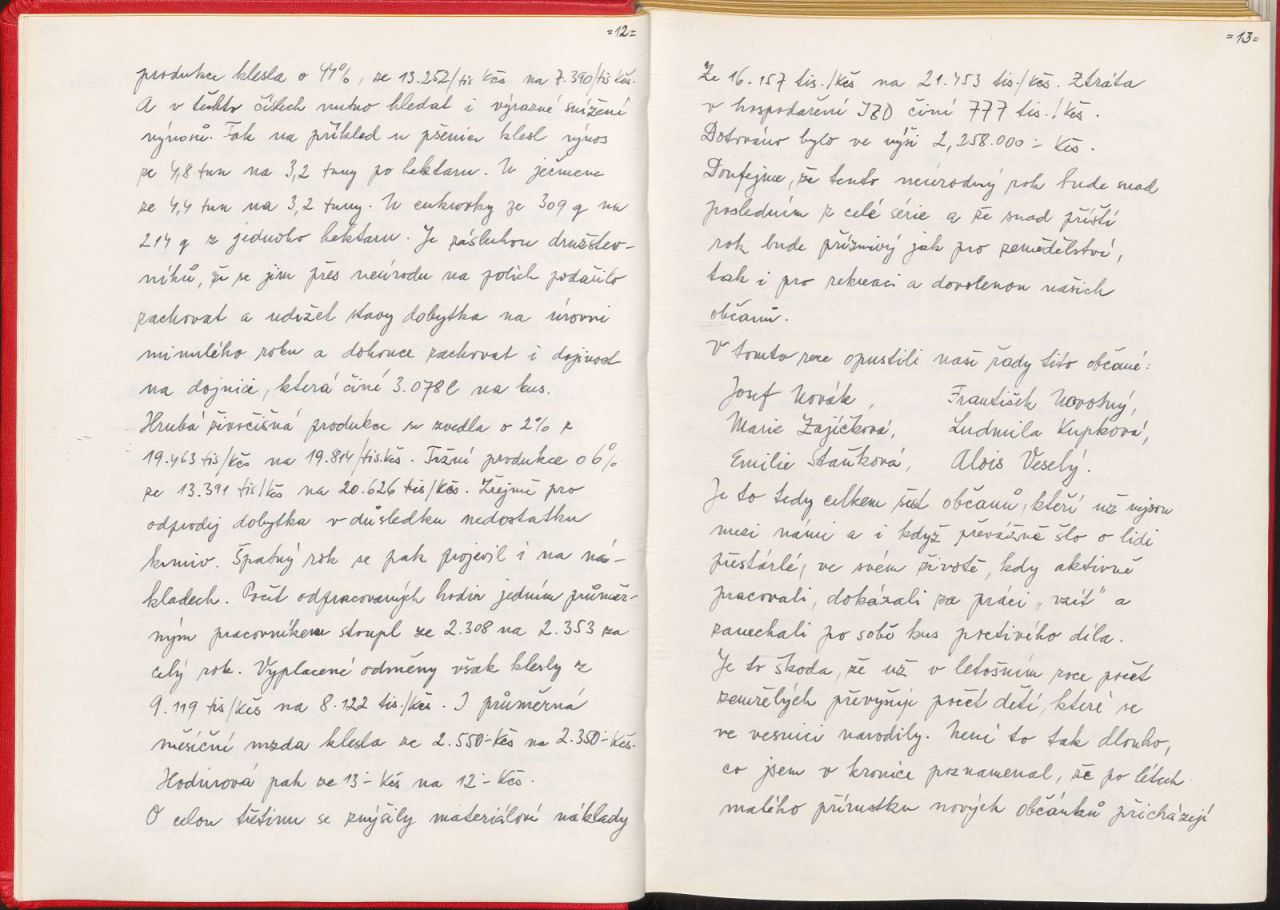 =12=
produkce klesla o 44%, ze 13.252/tis Kčs na 7.390/tis Kčs.
A v těchto číslech nutno hledat i výrazné snížení
výnosů. Tak na příklad u pšenice klesl výnos
ze 4,8 tun na 3,2 tuny po hektaru. U ječmene
ze 4,4 tun na 3,2 tuny. U cukrovky ze 309 q na
214 q z jednoho hektaru. Je zásluhou družstev-
níků, že se jim přes neúrodu na polích podařilo
zachovat a udržet stavy dobytka na úrovni
minulého roku a dokonce zachovat i dojivost
na dojnici, která činé 3.078 l na kus.
Hrubá živočišná produkce se zvedla o 2% z
19.463 tis/Kčs na 19.814/tis.Kčs. Tržní produkce o 6%
ze 13.391 tis/Kčs na 20.626 tis/Kčs. Zřejmě pro
odprodej dobytka v důsledku nedostatku
krmiv. Špatný rok se pak projevil i na ná-
kladech. Počet odpracovaných hodin jedním průměr-
ným pracovníkem stoupl ze 2.308 na 2.353 za
celý rok. Vyplacené odměny však klesly z
9.119 tis/Kčs na 8.122 tis./Kčs. I průměrná
měsíční mzda klesla ze 2.550:- Kčs na 2.350:- Kčs.
Hodinová pak ze 13:- Kčs na 12:- Kčs.
O celou třetinu se zvýšily materiálové náklady
=13=
Ze 16.157 tis./Kčs na 21.453 tis./Kčs. Ztráta
v hospodaření JZD činí 777 tis./Kčs.
Dotováno bylo ve výši 2,258.000:- Kčs.
Doufejme, že tento neúrodný rok bude snad
posledním z celé série a že snad příští
rok bude příznivý jak pro zemědělství,
tak i pro rekreaci a dovolenou našich
občanů.
V tomto roce opustili naši řady tito občané:
Josef Novák, František Novotný,
Marie Zajíčková, Ludmila Kupková,
Emilie Staňková, Alois Veselý.
Je to tedy celkem šest občanů, kteří už nejsou
mezi námi a i když převážně šlo o lidi
přestárlé, ve svém životě, kdy aktivně
pracovali, dokázali za práci „vzít" a
zanechali po sobě kus poctivého díla.
Je to škoda, že už v letošním roce počet
zemřelých převyšuje počet dětí, které se
ve vesnici narodily. Není to tak dlouho,
co jsem v kronice poznamenal, že po létech
malého přírustku nových občánků přicházejí